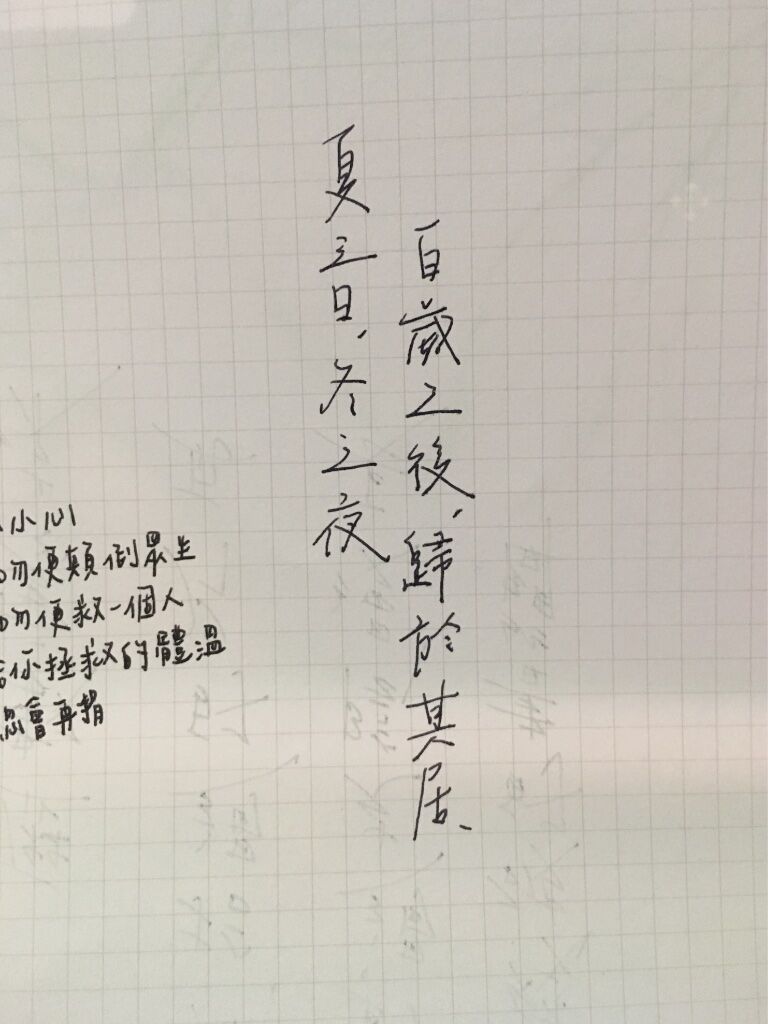 百歲之後、歸於其居、
夏之日、冬之夜
小心
勿便顛倒眾生
勿便救一個人
你拯救的體溫
會再捐